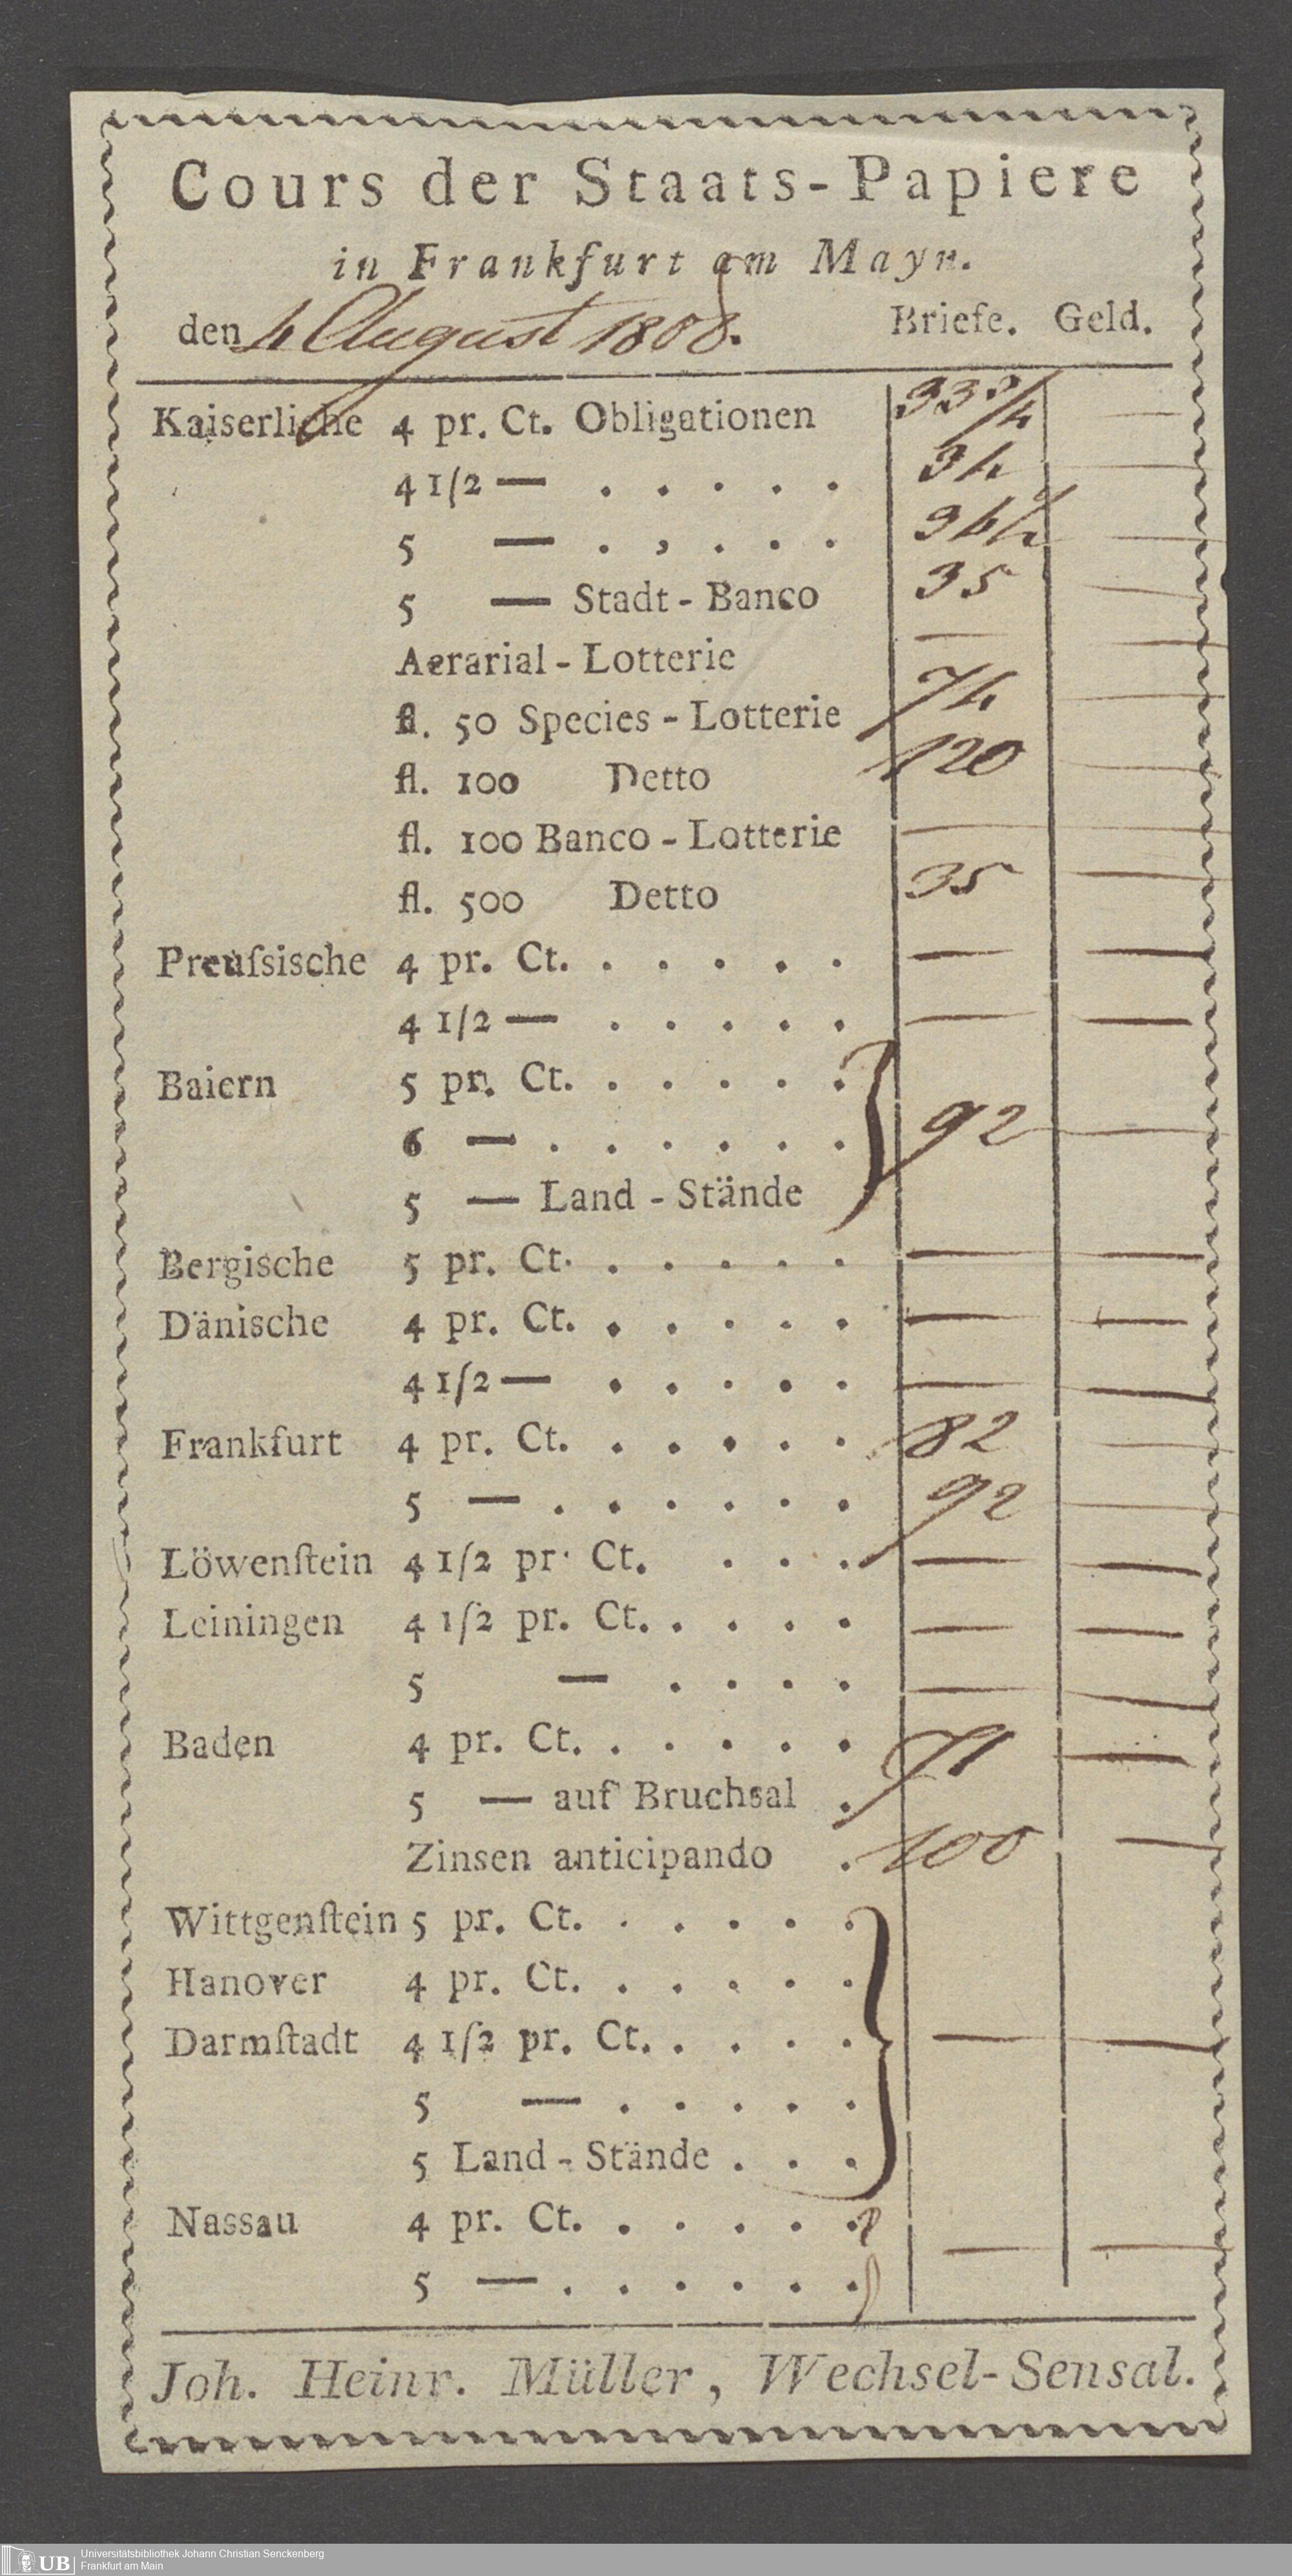 Cours der Staats-Papiere
in Frankfurt am Mayn.
den 4 August 1808. Briefe. Geld.
Kaiserliche 4 pr. Ct. Obligationen 33 3/4 —
4 1/2 — . . . . . 34 —
5 — . , . . . —
5 — Stadt-Banco 35 —
Aerarial-Lotterie — —
fl. 50 Species-Lotterie 74 —
fl. 100 Detto 120 —
fl. 100 Banco-Lotterie — —
fl. 500 Detto 35 —
Preuſsische 4 pr. Ct. . . . . . — —
4 1/2 — . . . . . — —
Baiern 5 pr. Ct. . . . . .
6 — . . . . . . } 92 —
5 — Land-Stände
Bergische 5 pr. Ct. . . . . . — —
Dänische 4 pr. Ct. . . . . . — —
4 1/2 — . . . . . — —
Frankfurt 4 pr. Ct. . . . . . 82 —
5 — . . . . . . 92 —
Löwenſtein 4 1/2 pr. Ct. . . . — —
Leiningen 4 1/2 pr. Ct. . . . . — —
5 — . . . . — —
Baden 4 pr. Ct. . . . . . 71 —
5 — auf Bruchsal .
Zinsen anticipando . 100 —
Wittgenſtein 5 pr. Ct. . . . . .
Hanover 4 pr. Ct. . . . . .
Darmſtadt 4 1/2 pr. Ct. . . . . } — —
5 — . . . . .
5 Land-Stände . . .
Nassau 4 pr. Ct. . . . . . } — —
5 — . . . . . .
Joh. Heinr. Müller, Wechsel-Sensal.
UB Universitätsbibliothek Johann Christian Senckenberg
Frankfurt am Main